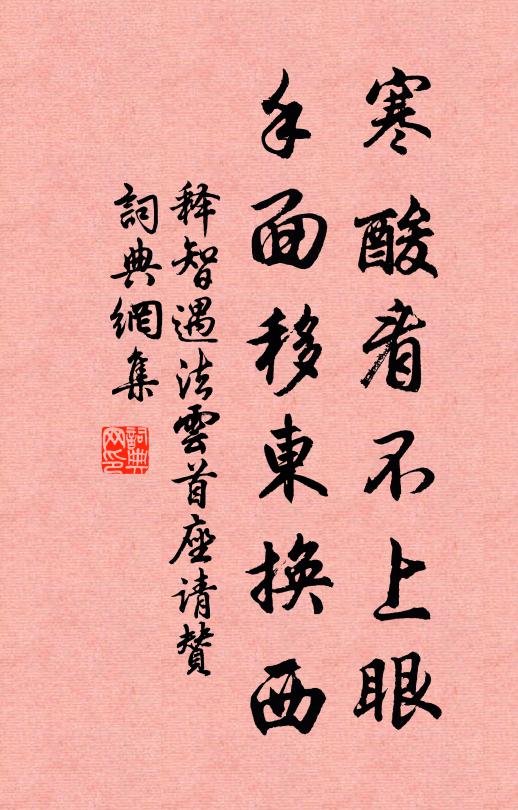 寒酸看不上眼
手面移東換西
释智遇法雲首座请贊
詞典網集
詞典
网印